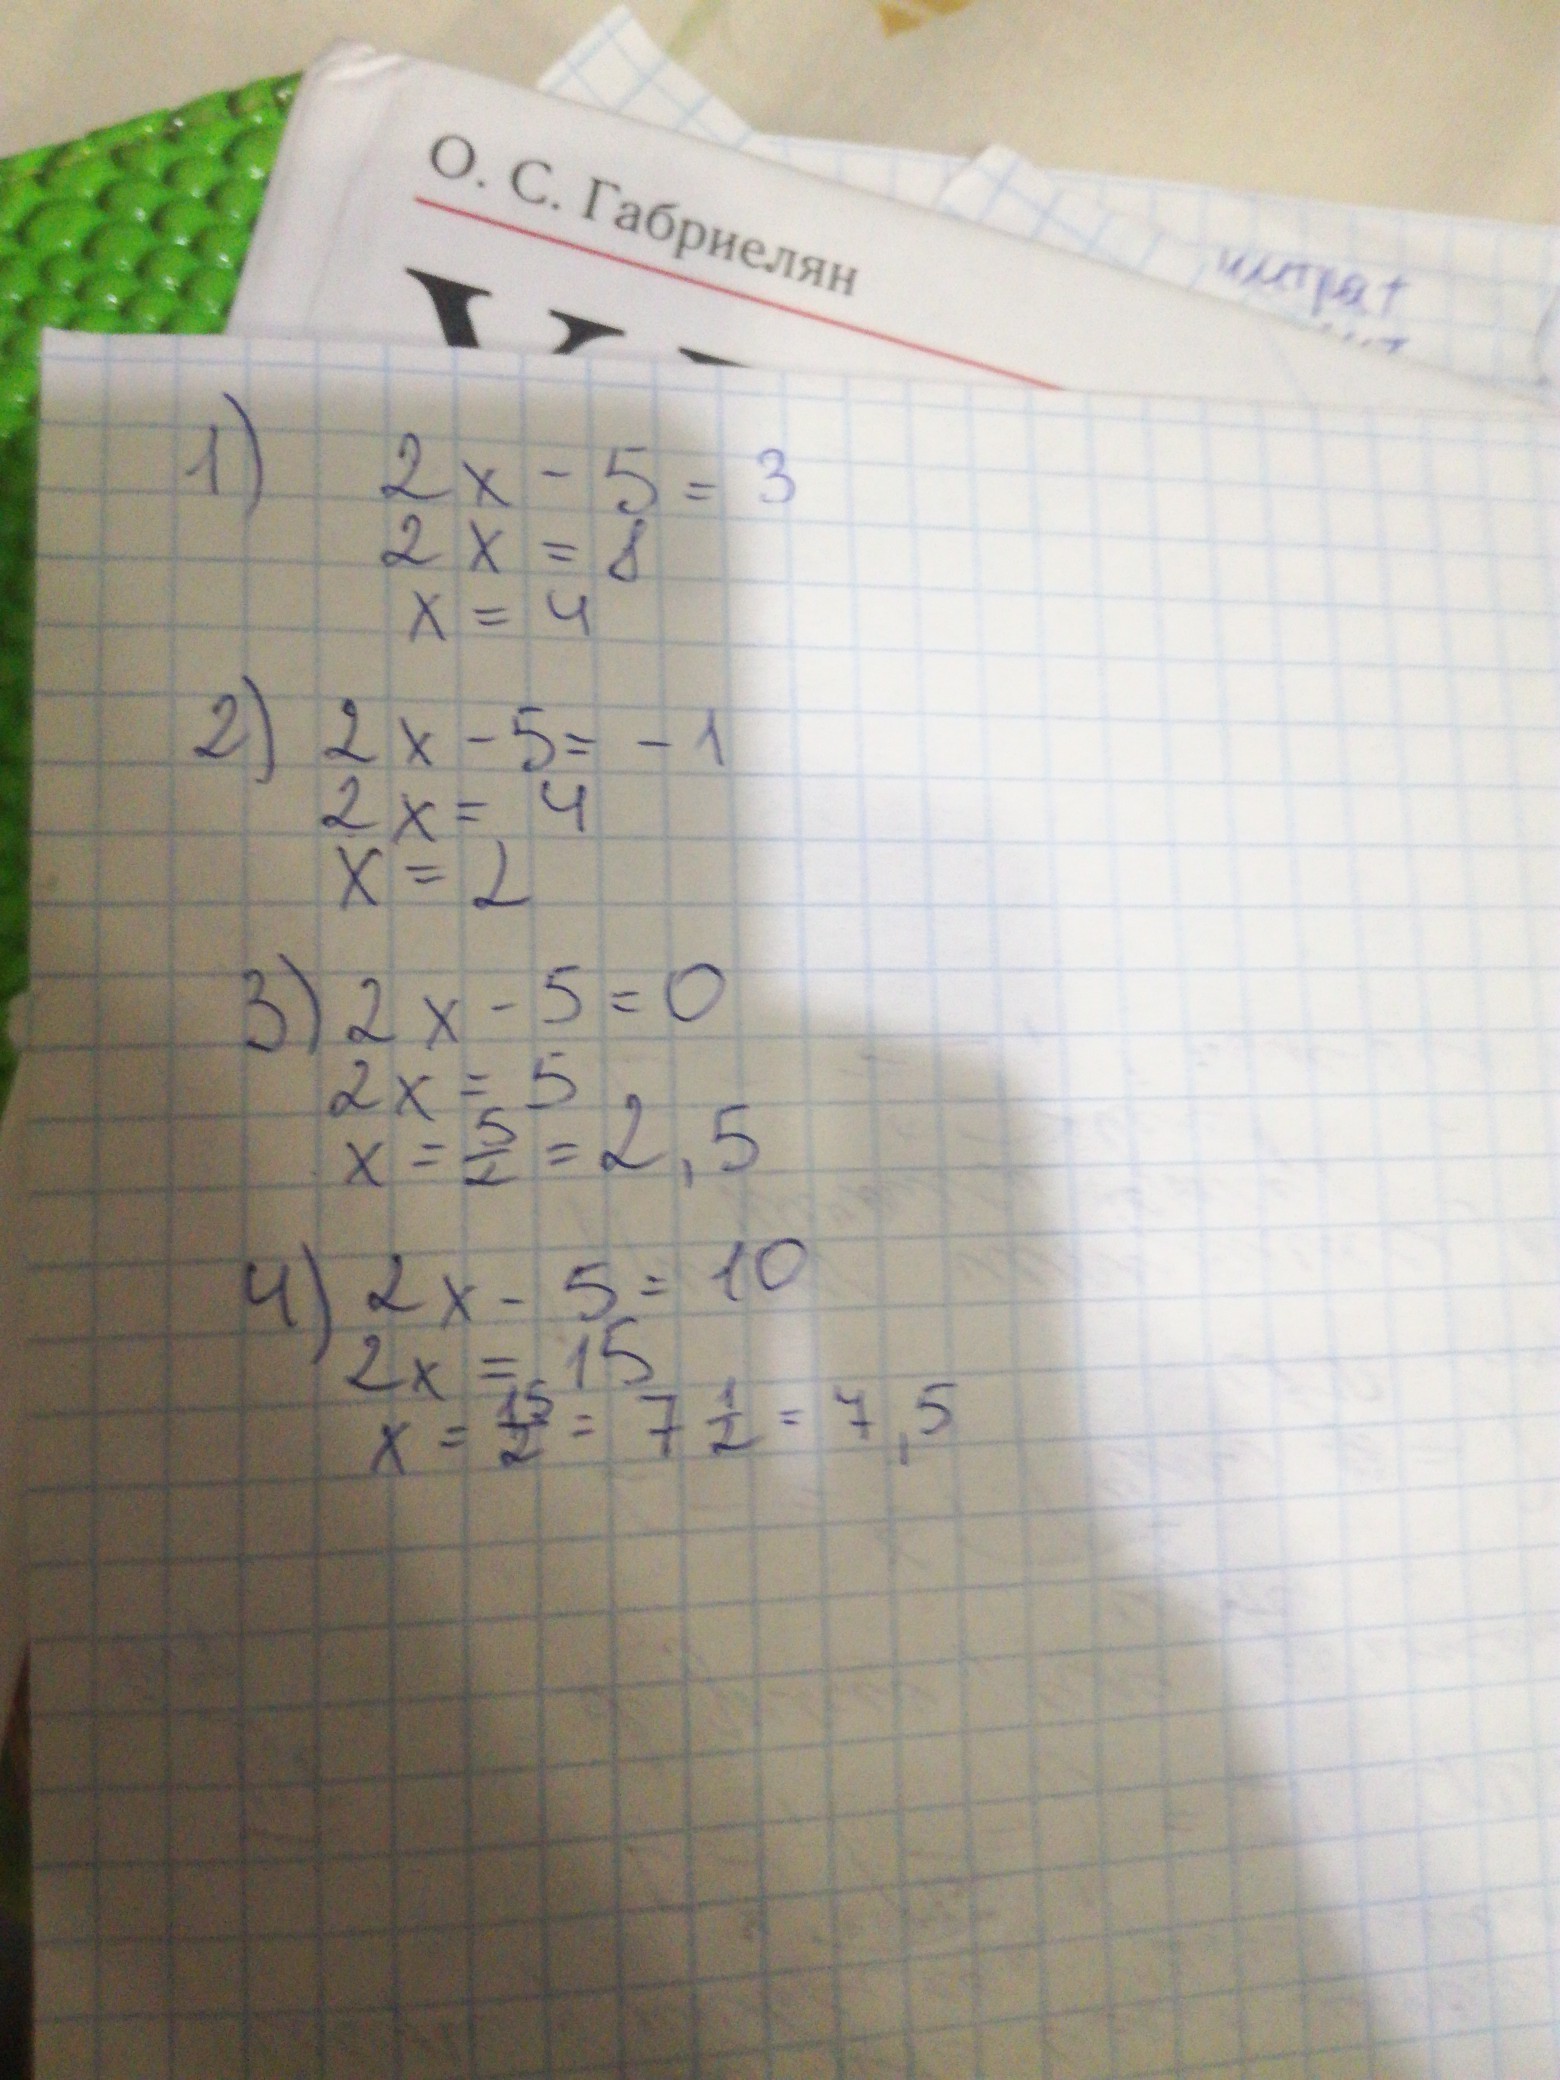 О. С. Габриелян
1) 2x - 5 = 3
2x = 8
x = 4
2) 2x - 5 = - 1
2x = 4
x = 2
3) 2x - 5 = 0
2x = 5
x = 5/2 = 2,5
4) 2x - 5 = 10
2x = 15
x = 15/2 = 7 1/2 = 7,5